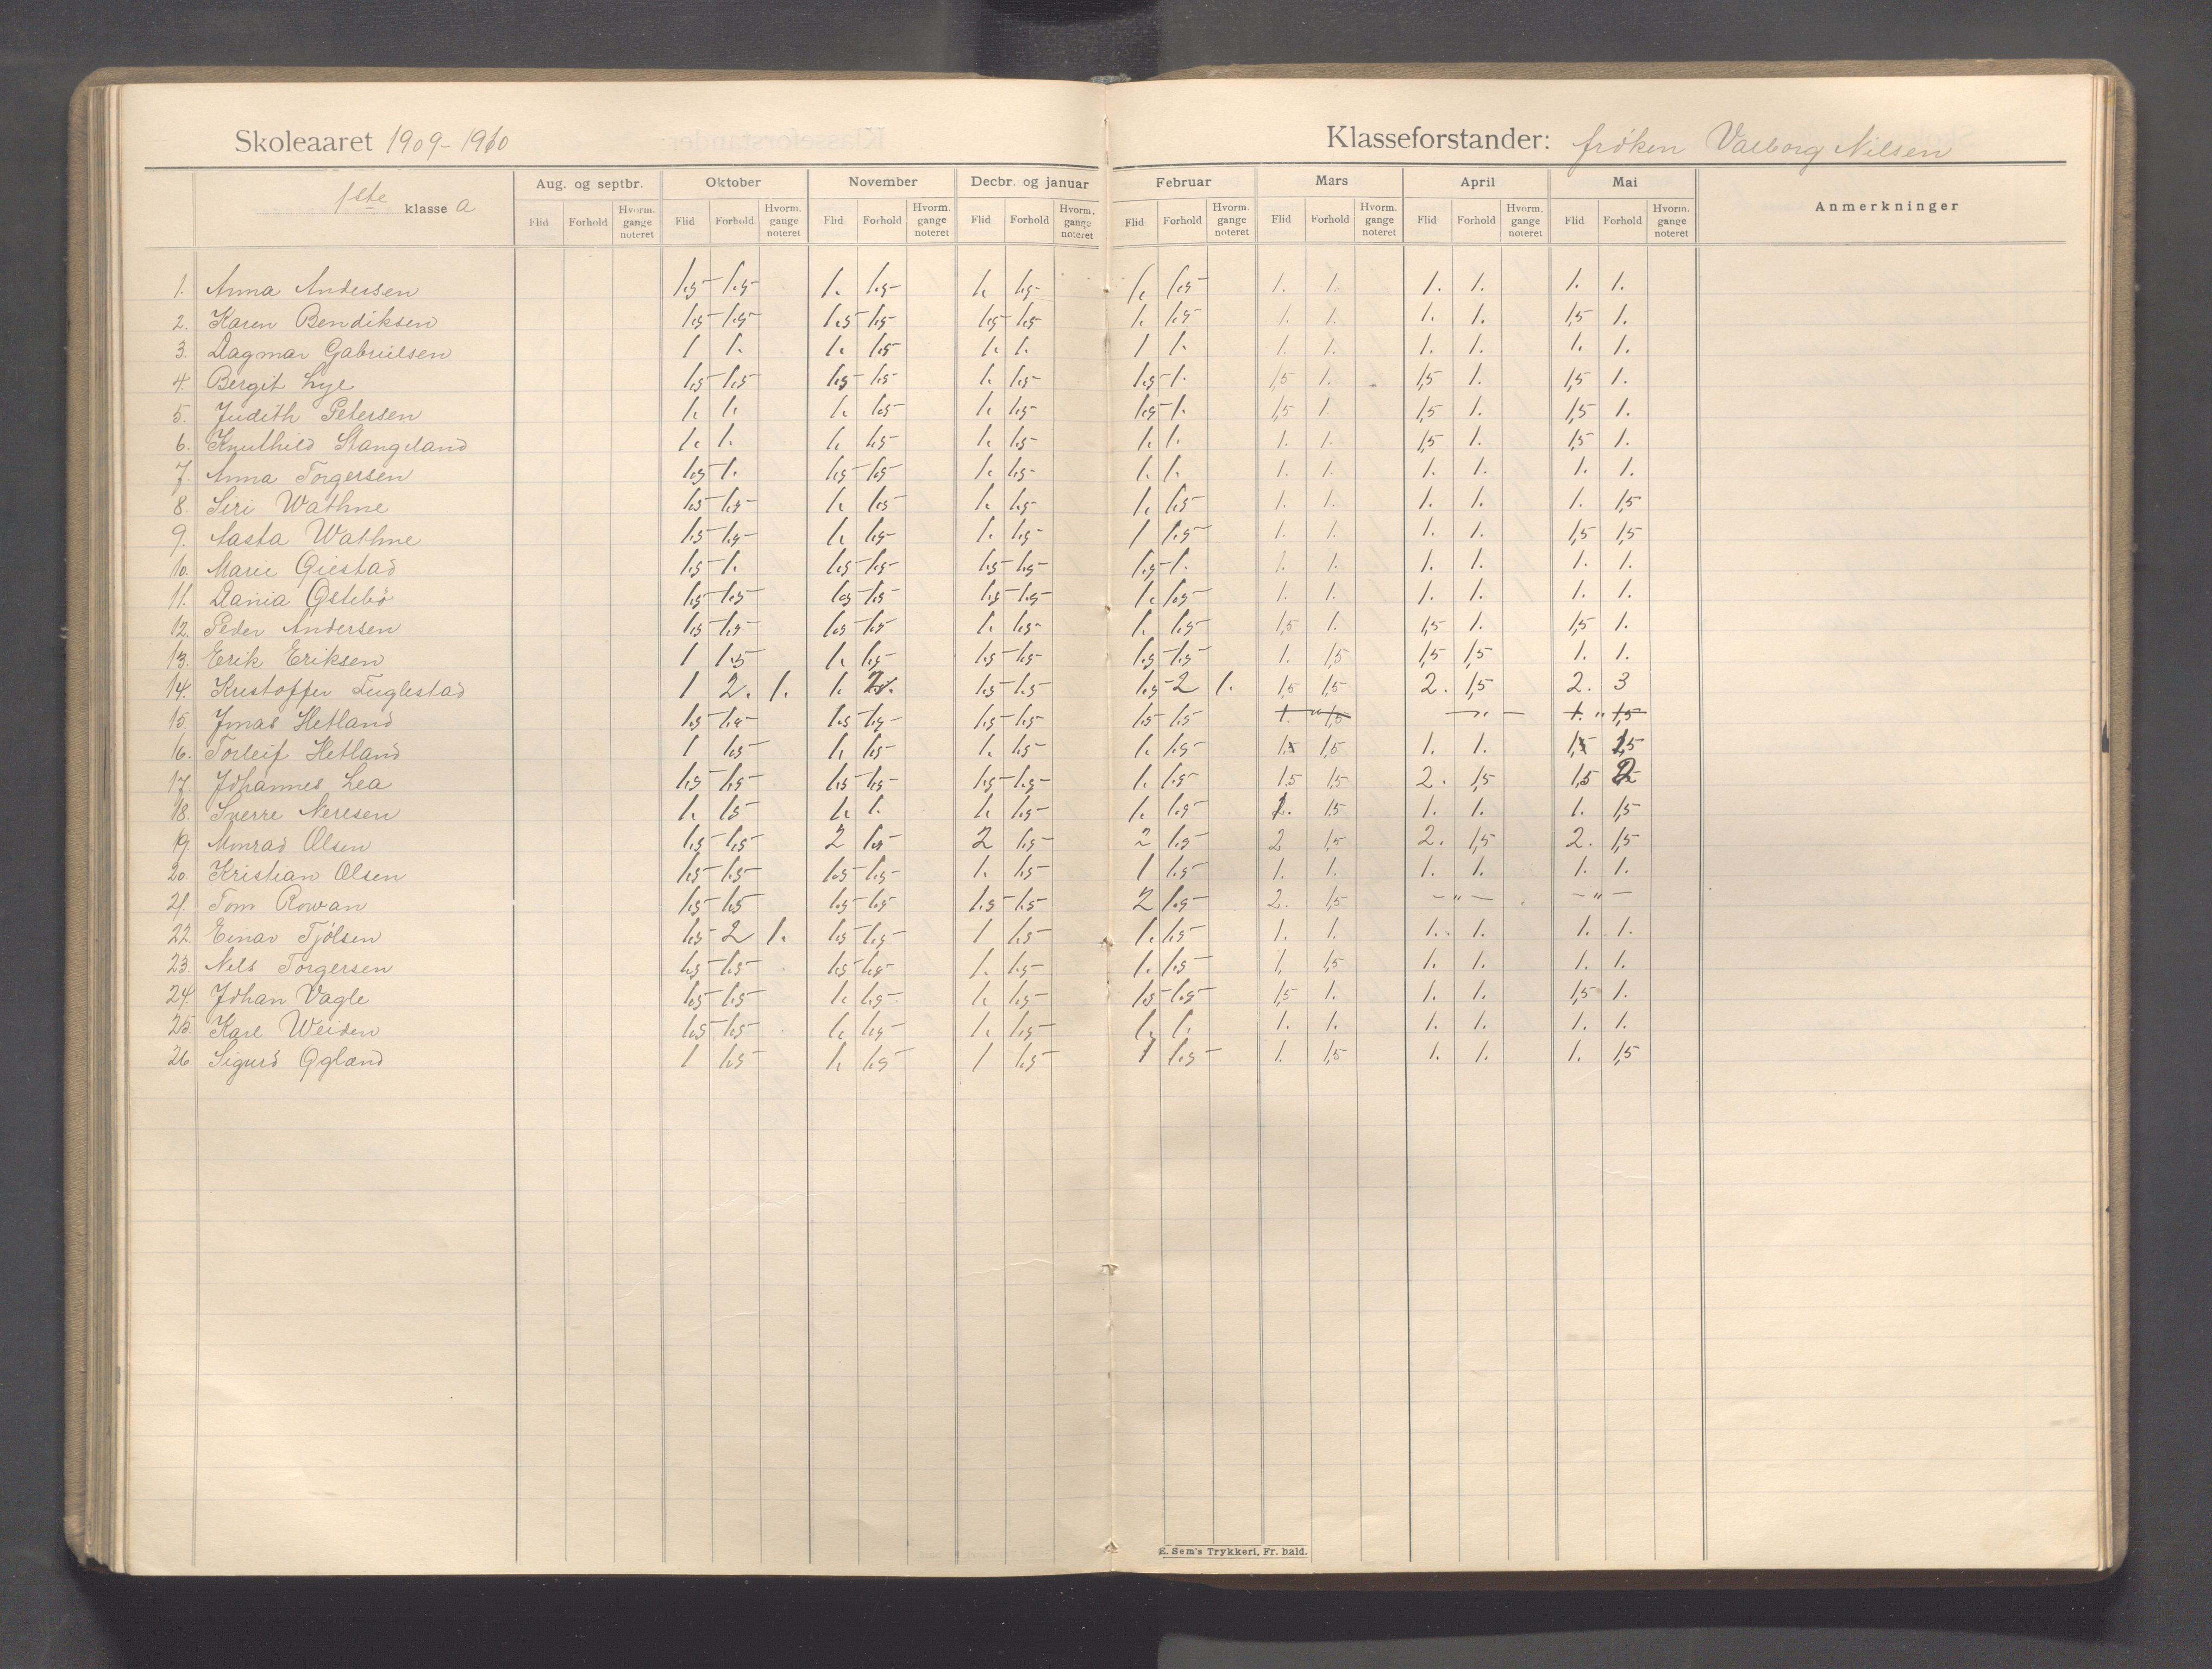 Skoleaaret 1909-1910
Klasseforstander: frøken Valborg Nilsen
1ste klasse a
Aug. og septbr. Oktober November Decbr. og januar Februar Mars April Mai Anmerkninger
Flid Forhold Hvorm. gange noteret Flid Forhold Hvorm. gange noteret Flid Forhold Hvorm. gange noteret Flid Forhold Hvorm. gange noteret Flid Forhold Hvorm. gange noteret Flid Forhold Hvorm. gange noteret Flid Forhold Hvorm. gange noteret Flid Forhold Hvorm. gange noteret
1. Anna Andersen 1,5 1,5 1. 1,5 1. 1,5 1. 1,5 1. 1. 1. 1. 1. 1.
2. Karen Bendiksen 1,5 1,5 1,5 1,5 1,5 1,5 1. 1,5 1. 1. 1. 1. 1,5 1.
3. Dagmar Gabrielsen 1 1. 1. 1,5 1. 1. 1 1. 1. 1. 1. 1. 1. 1.
4. Bergit Lye 1,5 1,5 1,5 1,5 1. 1,5 1,5 1. 1,5 1. 1,5 1. 1,5 1.
5. Judith Petersen 1. 1. 1. 1,5 1. 1,5 1,5 1. 1,5 1. 1,5 1. 1,5 1.
6. Knuthild Stangeland 1. 1. 1. 1,5 1. 1,5 1. 1. 1. 1. 1,5 1. 1,5 1.
7. Anna Torgersen 1,5 1. 1,5 1,5 1. 1,5 1. 1. 1. 1. 1. 1. 1. 1.
8. Siri Wathne 1,5 1,5 1. 1,5 1. 1,5 1. 1,5 1. 1. 1. 1. 1. 1,5
9. Aasta Wathne 1,5 1,5 1. 1,5 1. 1,5 1 1,5 1. 1. 1. 1. 1,5 1,5
10. Marie Giestad 1,5 1. 1,5 1,5 1,5 1,5 1,5 1. 1. 1. 1. 1. 1. 1.
11. Dania Østebø 1,5 1,5 1,5 1,5 1,5 1,5 1. 1,5 1. 1. 1. 1. 1. 1.
12. Peder Andersen 1,5 1,5 1,5 1,5 1. 1,5 1. 1,5 1,5 1. 1,5 1. 1,5 1.
13. Erik Eriksen 1 1.5 1. 1,5 1,5 1,5 1,5 1,5 1. 1,5 1,5 1,5 1. 1.
14. Kristoffer Fuglestad 1 2. 1. 1. 2. 1,5 1,5 1,5 2 1. 1,5 1,5 2. 1,5 2. 3
15. Jonas Hetland 1,5 1,5 1,5 1,5 1,5 1,5 1,5 1,5 1. " 1,5 — " — 1. " 1,5
16. Torleif Hetland 1 1,5 1. 1,5 1. 1,5 1. 1,5 1. 1,5 1. 1. 1. 1,5
17. Johannes Lea 1,5 1,5 1,5 1,5 1,5 1,5 1. 1,5 1,5 1,5 2. 1,5 1,5 2
18. Sverre Neresen 1. 1,5 1. 1. 1. 1,5 1. 1,5 1. 1,5 1. 1. 1. 1,5
19. Monrad Olsen 1,5 1,5 2 1,5 2 1,5 2 1,5 2 1,5 2. 1,5 2. 1,5
20. Kristian Olsen 1,5 1,5 1,5 1,5 1. 1,5 1 1,5 1. 1. 1. 1. 1. 1.
21. Tom Rowan 1,5 1,5 1,5 1,5 1,5 1,5 2 1,5 2. 1,5 — " — — " —
22. Einar Tjølsen 1,5 2 1. 1,5 1,5 1 1,5 1. 1,5 1. 1. 1. 1. 1. 1.
23. Nils Torgersen 1,5 1,5 1,5 1,5 1. 1,5 1. 1,5 1. 1,5 1. 1. 1. 1.
24. Johan Vagle 1,5 1,5 1. 1,5 1. 1,5 1,5 1,5 1,5 1. 1. 1. 1,5 1.
25. Karl Weiden 1,5 1,5 1. 1,5 1. 1,5 1. 1. 1. 1. 1. 1. 1. 1.
26. Sigurd Ogland 1 1,5 1. 1,5 1 1,5 1 1,5 1. 1,5 1. 1. 1. 1,5
E. Sem's Trykkeri, Fr. hald.